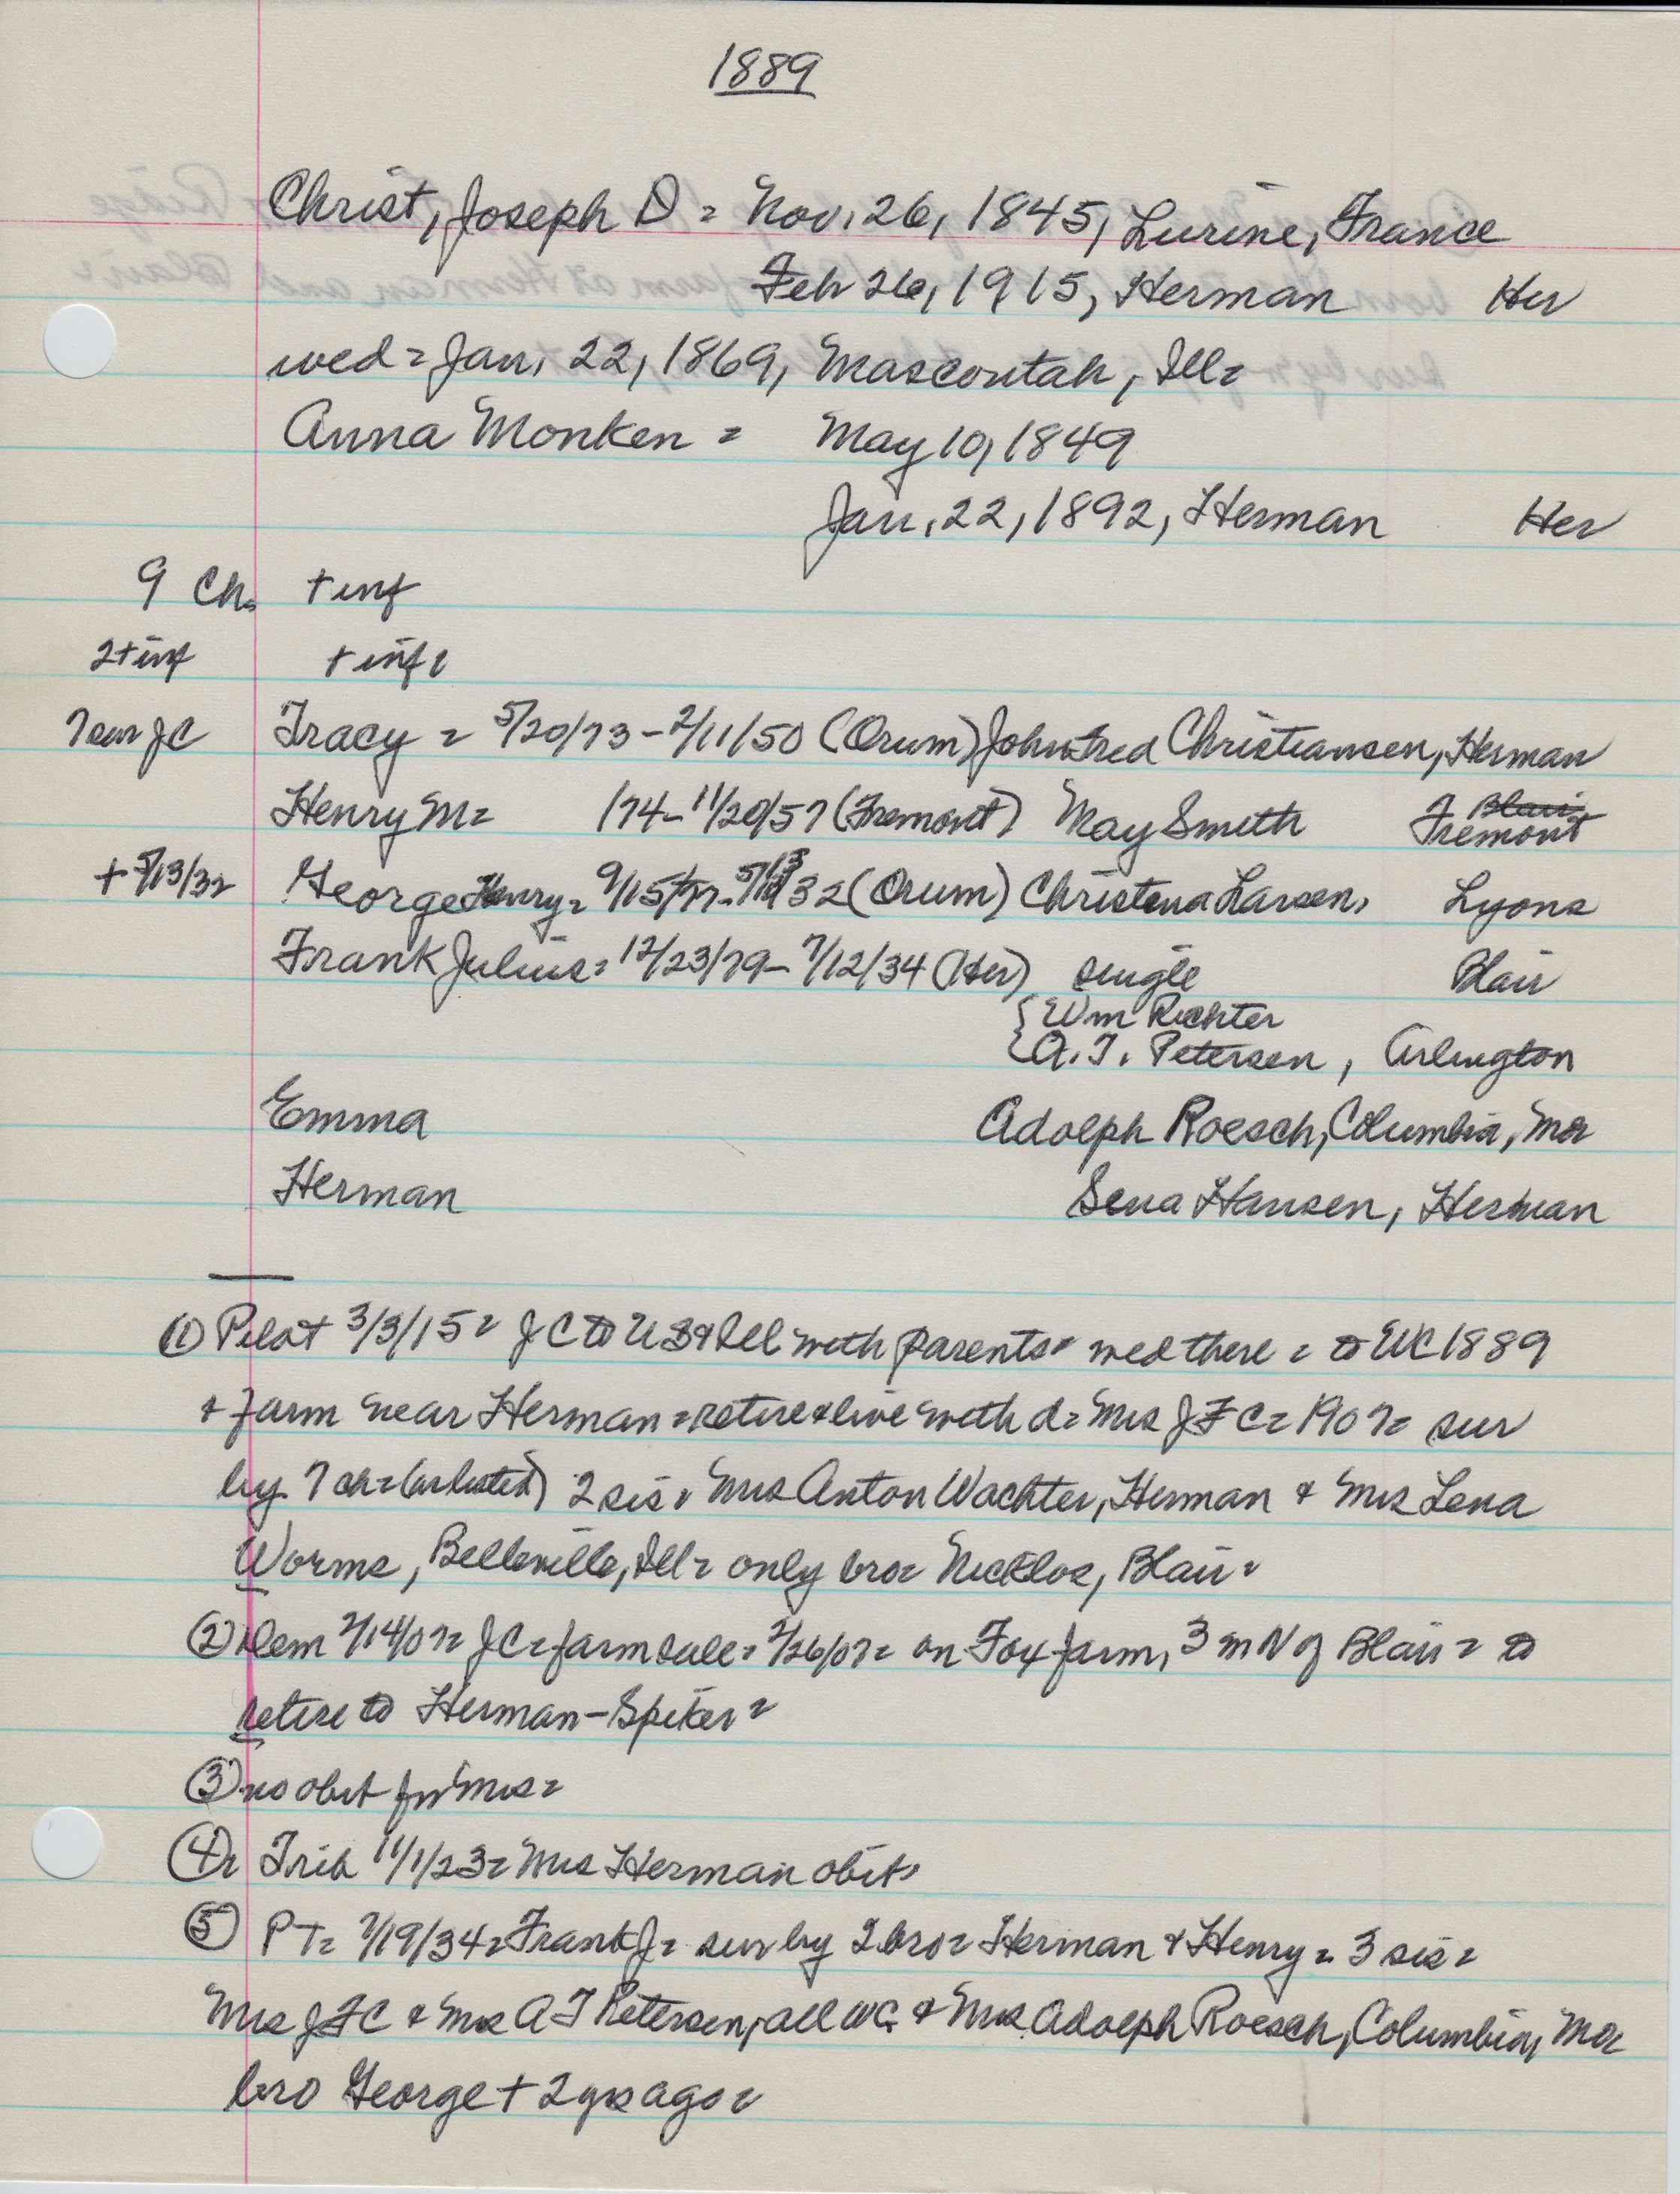 1889
Christ, Joseph D = Nov. 26, 1845, Lurine, France
Feb 26, 1915, Herman Her
wed = Jan. 22, 1869, Mascoutah, Ill =
Anna Monken = May 10, 1849
Jan. 22, 1892, Herman Her
9 Ch. + inf
2 + inf + inf =
7 sur JC Tracy = 5/20/73 - 2/11/50 (Orum) John Fred Christiansen, Herman
Henry M = /74 - 11/20/57 (Fremont) May Smith Blair Fremont
+ 5/13/32 George Henry = 9/15/77 - 5/13/32 (Orum) Christena Larsen, Lyons
Frank Julius = 12/23/79 - 7/12/34 (Her) single Blair
{ Wm Richter
{ A. T. Petersen, Arlington
Emma Adolph Roesch, Columbia, Mo
Herman Sena Hansen, Herman
(1) Pilot 3/3/15 = JC to US & Ill with parents = wed there = to WC 1889
& farm near Herman = retire & live with d = Mrs JFC = 1907 = sur
by 7 ch = (as listed) 2 sis = Mrs Anton Wachter, Herman & Mrs Lena
Worms, Belleville, Ill = only bro = Nicklos, Blair =
(2) Dem 2/14/07 = JC = farm sale = 2/26/07 = on Fox farm, 3 m N of Blair = to
retire to Herman - Spiker =
(3) no obit for Mrs =
(4) = Trib 11/1/23 = Mrs Herman obit =
(5) PT = 7/19/34 = Frank J = sur by 2 bro = Herman & Henry = 3 sis =
Mrs JFC & Mrs A T Petersen, all WC & Mrs Adolph Roesch, Columbia, Mo
bro George + 2 yrs ago =